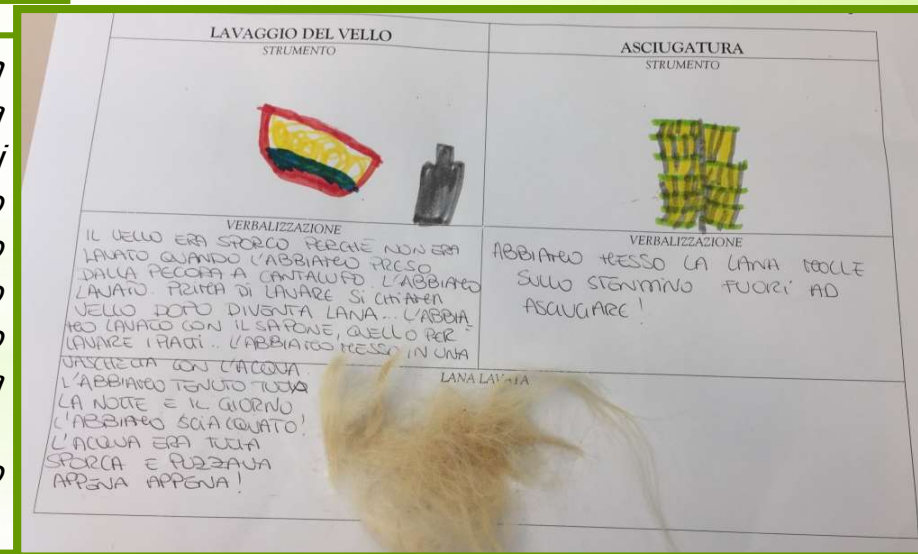 LAVAGGIO DEL VELLO
STRUMENTO
ASCIUGATURA
STRUMENTO
VERBALIZZAZIONE
IL VELLO ERA SPORCO PERCHÉ NON ERA
LAVATO QUANDO L'ABBIAMO PRESO
DALLA PECORA A CANTALUPO. L'ABBIAMO
LAVATO. PRIMA DI LAVARE SI CHIAMA
VELLO DOPO DIVENTA LANA... L'ABBIA
MO LAVATO CON IL SAPONE, QUELLO PER
LAVARE I PIATTI.. L'ABBIAMO MESSO IN UNA
VASCHETTA CON L'ACQUA.
L'ABBIAMO TENUTO TUTTA
LA NOTTE E IL GIORNO
L'ABBIAMO SCIACQUATO!
L'ACQUA ERA TUTTA
SPORCA E PUZZAVA
APPENA APPENA!
VERBALIZZAZIONE
ABBIAMO MESSO LA LANA MOLLE
SULLO STENDINO FUORI AD
ASCIUGARE!
LANA LAVATA